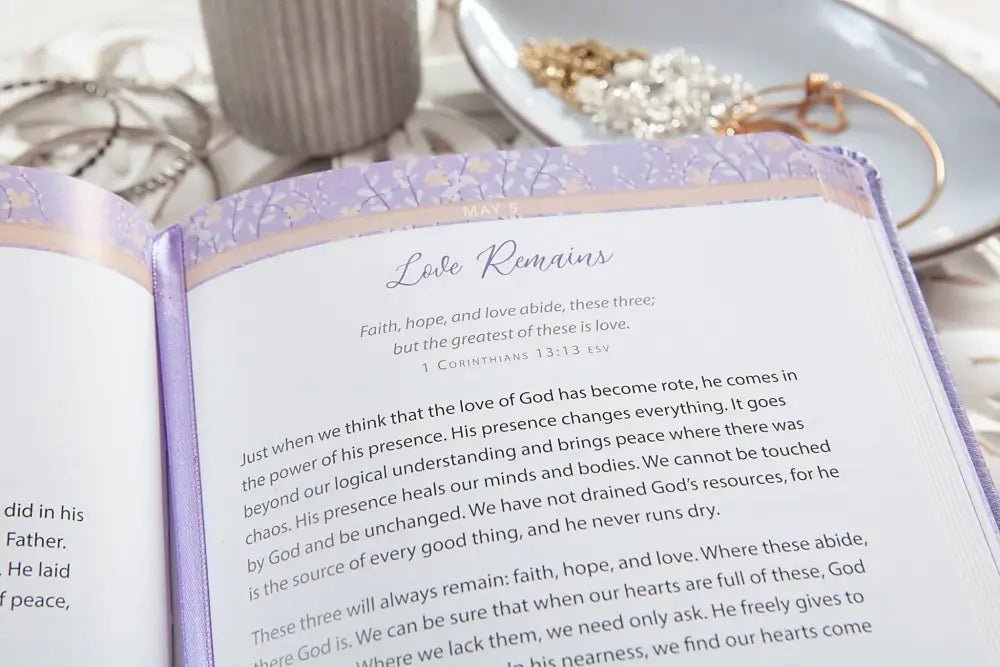 did in his
Father.
He laid
peace,
MAY 5
Love Remains
Faith, hope, and love abide, these three;
but the greatest of these is love.
1 CORINTHIANS 13:13 ESV
Just when we think that the love of God has become rote, he comes in
the power of his presence. His presence changes everything. It goes
beyond our logical understanding and brings peace where there was
chaos. His presence heals our minds and bodies. We cannot be touched
by God and be unchanged. We have not drained God's resources, for he
is the source of every good thing, and he never runs dry.
These three will always remain: faith, hope, and love. Where these abide,
there God is. We can be sure that when our hearts are full of these, God
Where we lack them, we need only ask. He freely gives to
In his nearness, we find our hearts come